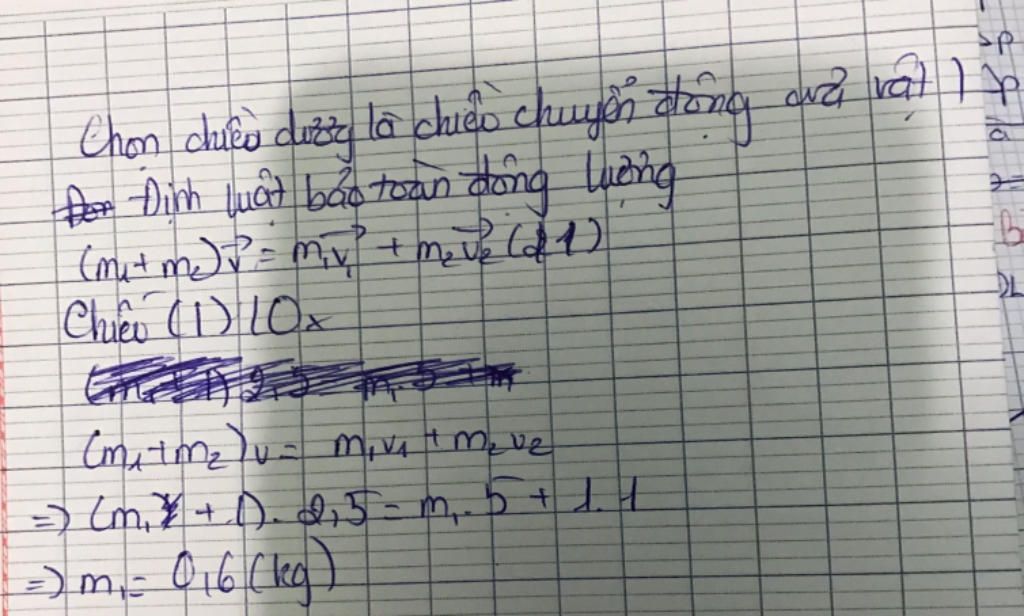 Chọn chiều dương là chiều chuyển động của vật 1
Định luật bảo toàn động lượng
(m₁+m₂)v⃗ = m₁v⃗₁ + m₂v⃗₂ (1)
Chiếu (1) lOx
(m₁+m₂)v = m₁v₁ + m₂v₂
=> (m₁ + 1). 2,5 = m₁. 5 + 1.1
=> m₁ = 0,6 (kg)